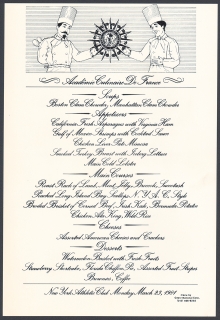 Académie Culinaire De France
Soups
Boston Clam Chowder, Manhattan Clam Chowder
Appetizers
California Fresh Asparagus with Virginia Ham
Gulf of Mexico Shrimps with Cocktail Sauce
Chicken Liver Pate Mousse
Smoked Turkey Breast with Iceberg Lettuce
Maine Cold Lobster
Main Courses
Roast Rack of Lamb, Mint Jelly, Broccoli, Succotash
Poached Long Island Bay Scallops, N.Y.A.C. Style
Broiled Brisket of Corned Beef, Irish Kale, Bermuda Potato
Chicken Ala King, Wild Rice
Cheeses
Assorted American Cheeses and Crackers
Desserts
Watermelon Basket with Fresh Fruits
Strawberry Shortcake, Florida Chiffon Pie, Assorted Fruit Shapes
Bananas, Coffee
New York Athletic Club Monday March 23, 1981